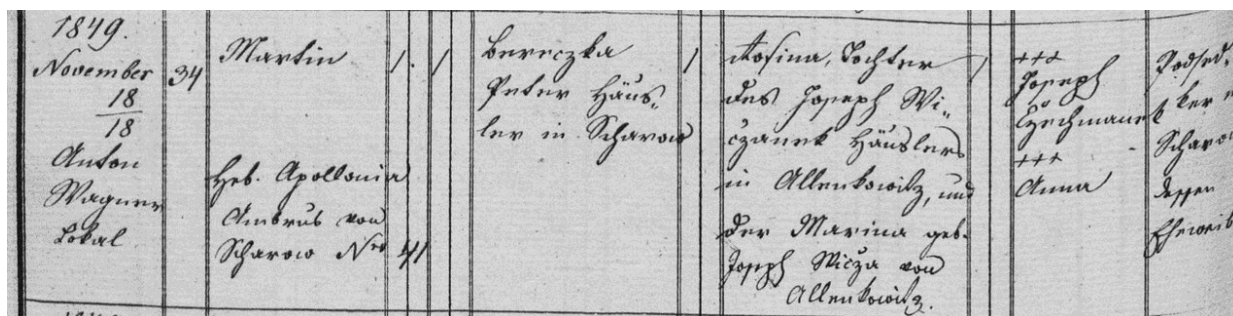 1849.
November
18
18
Anton
Wagner
Lokal
34
Martin
Heb. Apollonia
Ambrus von
Scharow Nro 41
/. /
Bereczka
Peter Häus-
ler in Scharow
/
Rosina, Tochter
des Joseph Wi-
czanek Häuslers
in Allenkowitz, und
der Marina geb.
Joseph Wicza von
Allenkowitz.
/
+++
Joseph
Czechmanek
+++
Anna
Podsed-
ker
Scharow
dessen
Eheweib